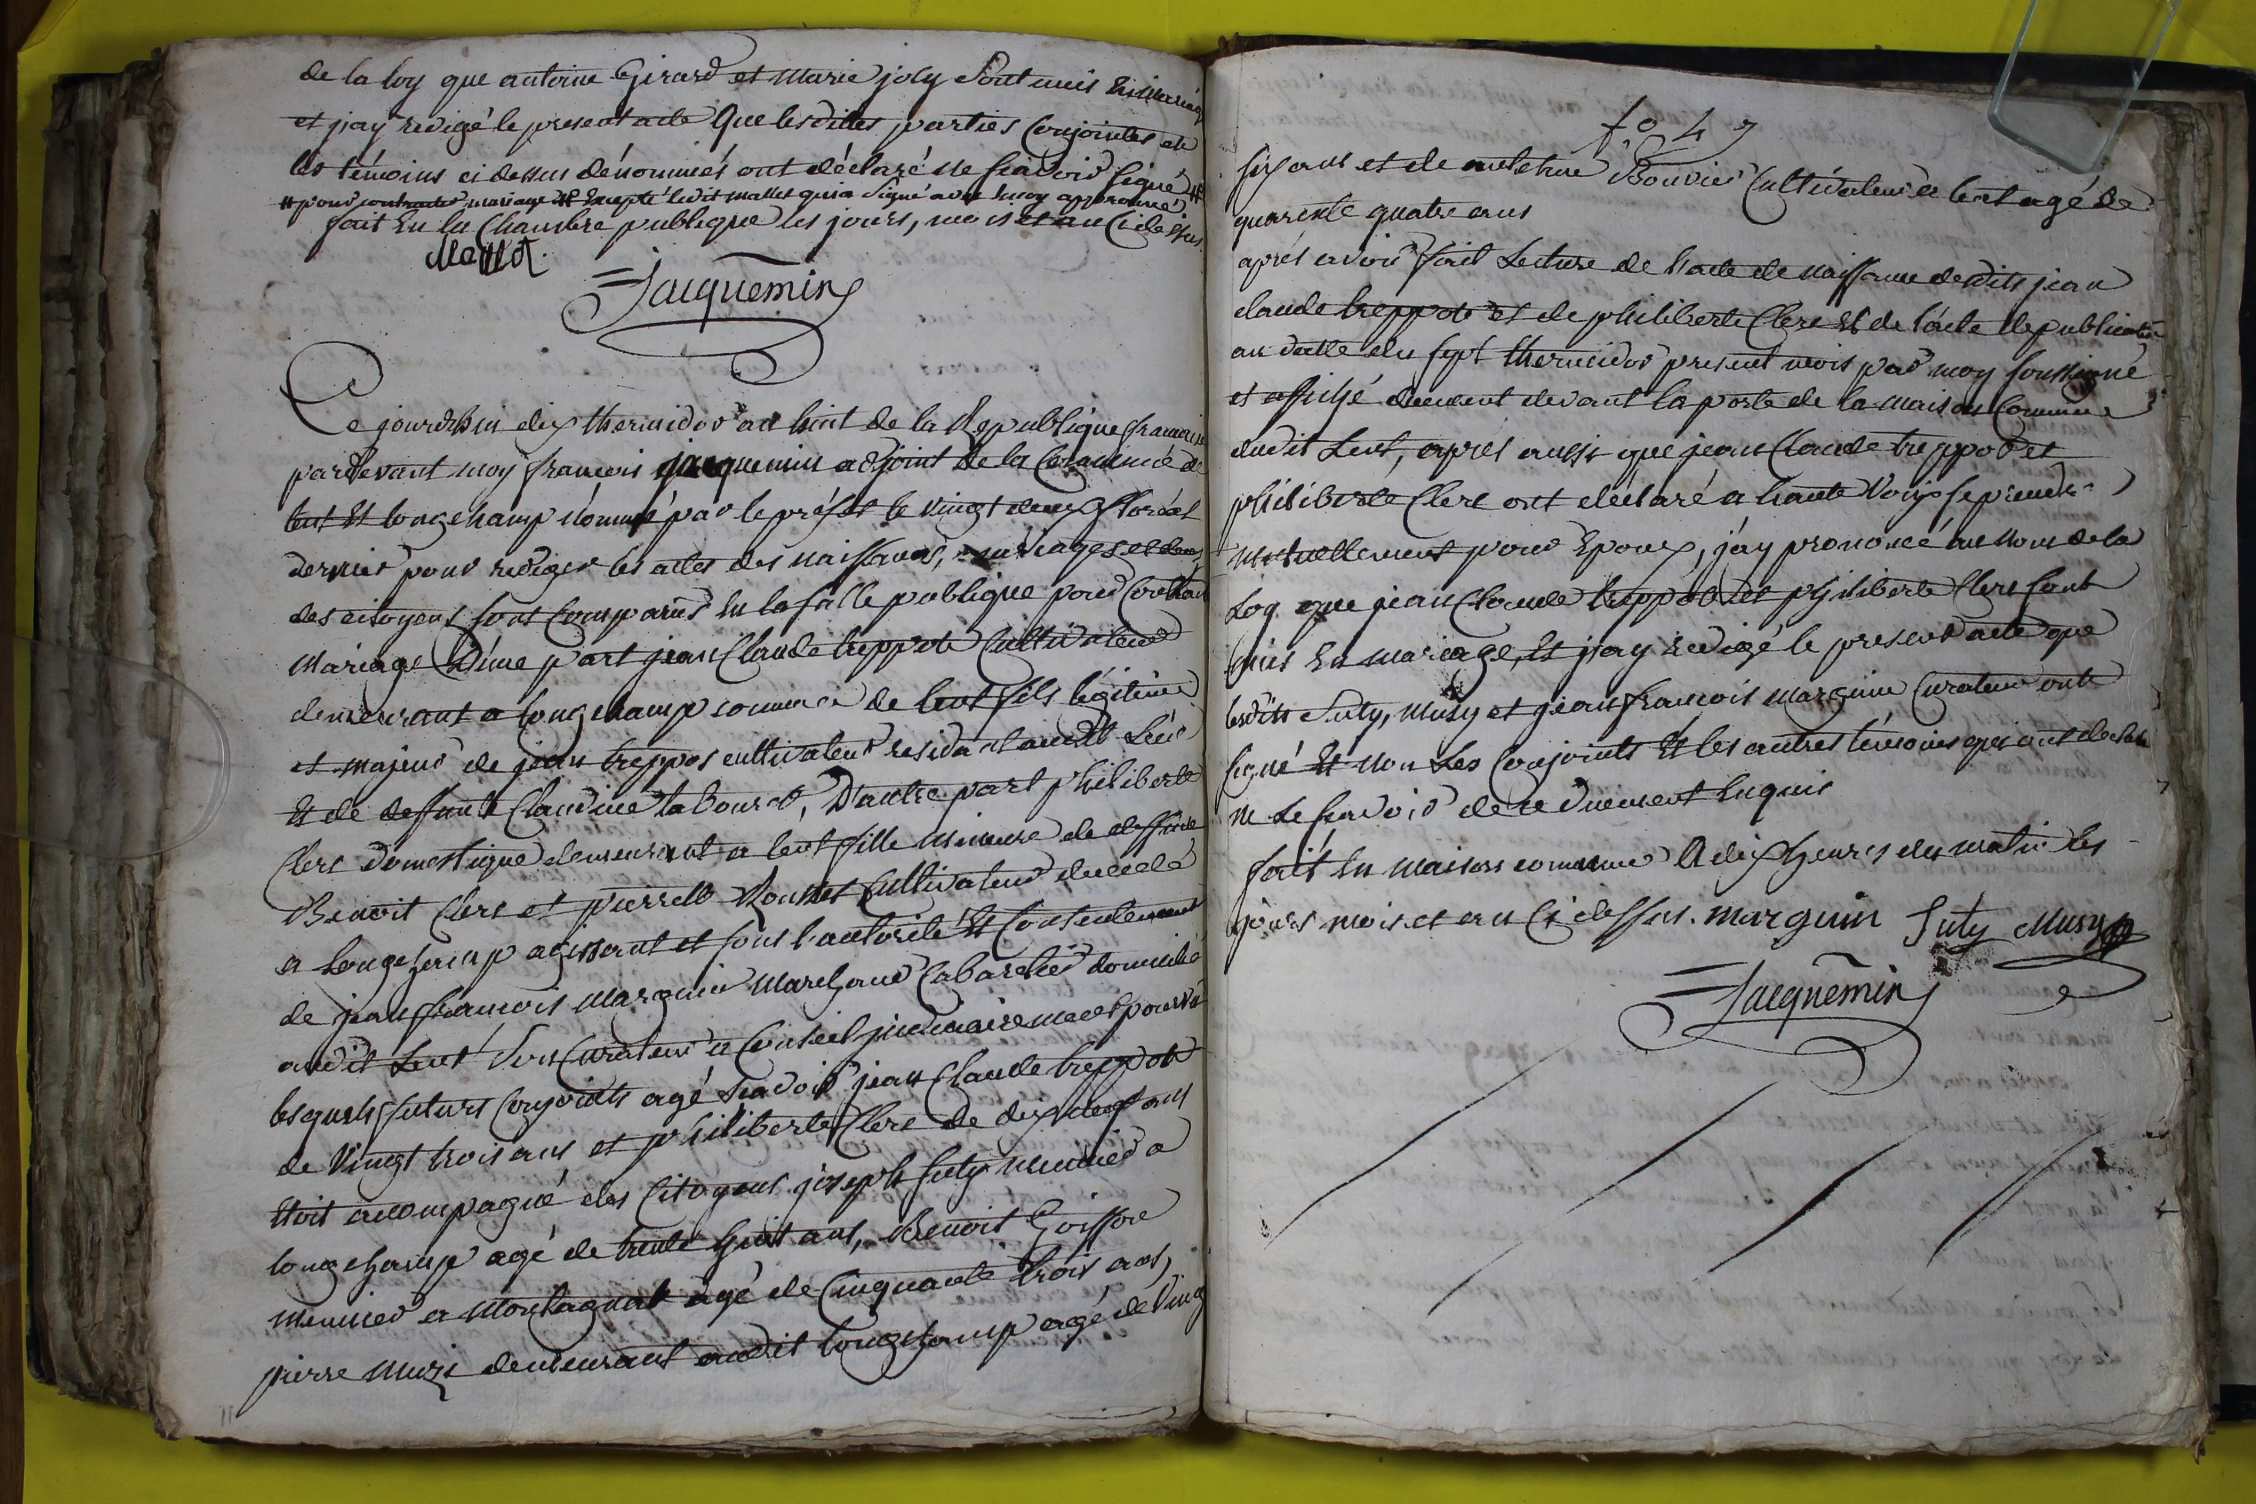 de la loy que antoine Girard et Marie joly Sont unis En mariage
et j'ay redigé le present acte Que lesdittes parties Conjointes et
les témoins ci dessus dénommés ont déclaré ne scavoir signé #
# pour contracter mariage # Excepté ledit mallet qui a signé avec moy approuvé
fait En la Chambre publique les jours, mois et an Ci dessus.
Mallet.
Jacquemin
Ce jourdhui dix thermidor an huit de la Republique francaise
pardevant moy francois jacquemin adjoint de la Commune de
lent Et longchamp nommé par le préfet le vingt deux floréal
dernier pour rediger les actes des naissances, mariages et deces
des citoyens sont Comparus En la salle publique pour Contracter
Mariage D'une part jean Claude treppoz Cultivateur
demeurant a longchamp commune de lent fils légitime
et majeur de jean treppos cultivateur residant audit Lent
Et de deffunte Claudine tabouret, D'autre part philiberte
Clerc domestique demeurant a lent fille mineure de deffunt
Benoit Clerc et pierrette Rousset Cultivateur decedé
a Longchamp agissant et sous l'autorité Et Consentement
de jean francois marguin marchand Cabaretier domicilié
audit Lent Son Curateur a Conseil judiciairement pourvu
lesquels futurs Conjoints agé Scavoir jean Claude treppoz
de Vingt trois ans et philiberte Clerc de dix neuf ans
Etoit accompagné des Citoyens joseph Suty meunier a
longchamp agé de trente huit ans, Benoit Goiffon
meunier a Montagnat agé de Cinquante trois ans,
pierre muzi demeurant audit longchamp agé de Vingt
fo 47
six ans et de Bouvier Cultivateur a lent agé de
quarente quatre ans
aprés avoir fait Lecture de l'acte de naissance desdits jean
claude treppoz et de philiberte Clerc Et de l'acte de publication
en datte du sept thermidor present mois par moy soussigné
et affiché duement devant la porte de la maison Commune
dudit Lent, aprés aussi que jean Claude treppoz et
philiberte Clerc ont déclaré a haute Voix se prendre
mutuellement pour Epoux, j'ay prononcé au nom de la
Loy que jean Claude treppoz et philiberte Clerc sont
unis En mariage, Et j'ay redigé le present acte que
lesdits Suty, Musy et jean francois marguin Curateur ont
signé Et non Les Conjoints Et les autres témoins qui ont declaré
ne Le scavoir de ce duement Enquis
fait En maison commune a dix heures du matin les
jours mois et an Ci dessus. Marguin Suty Musy
Jacquemin